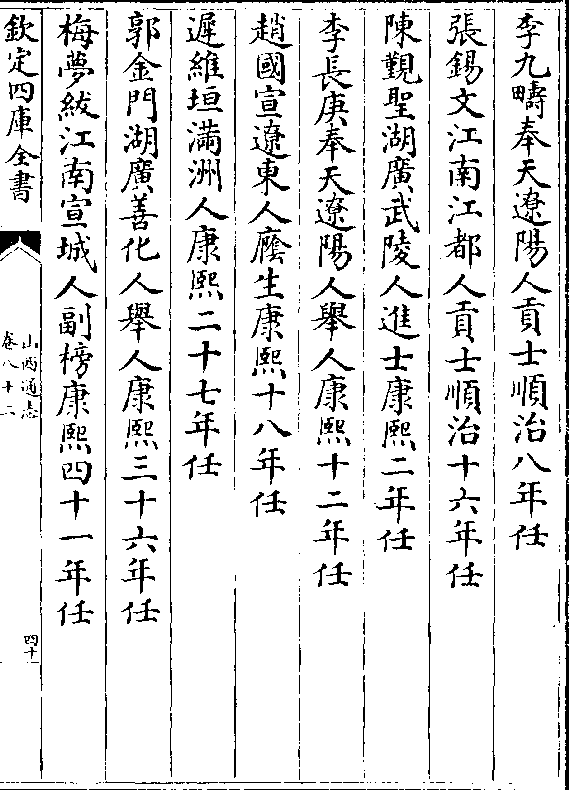 李九疇奉天遼陽人貢士順治八年任
張錫文江南江都人貢士順治十六年任
陳覲聖湖廣武陵人進士康熙二年任
李長庚奉天遼陽人舉人康熙十二年任
趙國宣遼東人廕生康熙十八年任
遲維垣滿洲人康熙二十七年任
郭金門湖廣善化人舉人康熙三十六年任
梅夢紱江南宣城人副榜康熙四十一年任
欽定四庫全書
山西通志
卷八十二
四十一